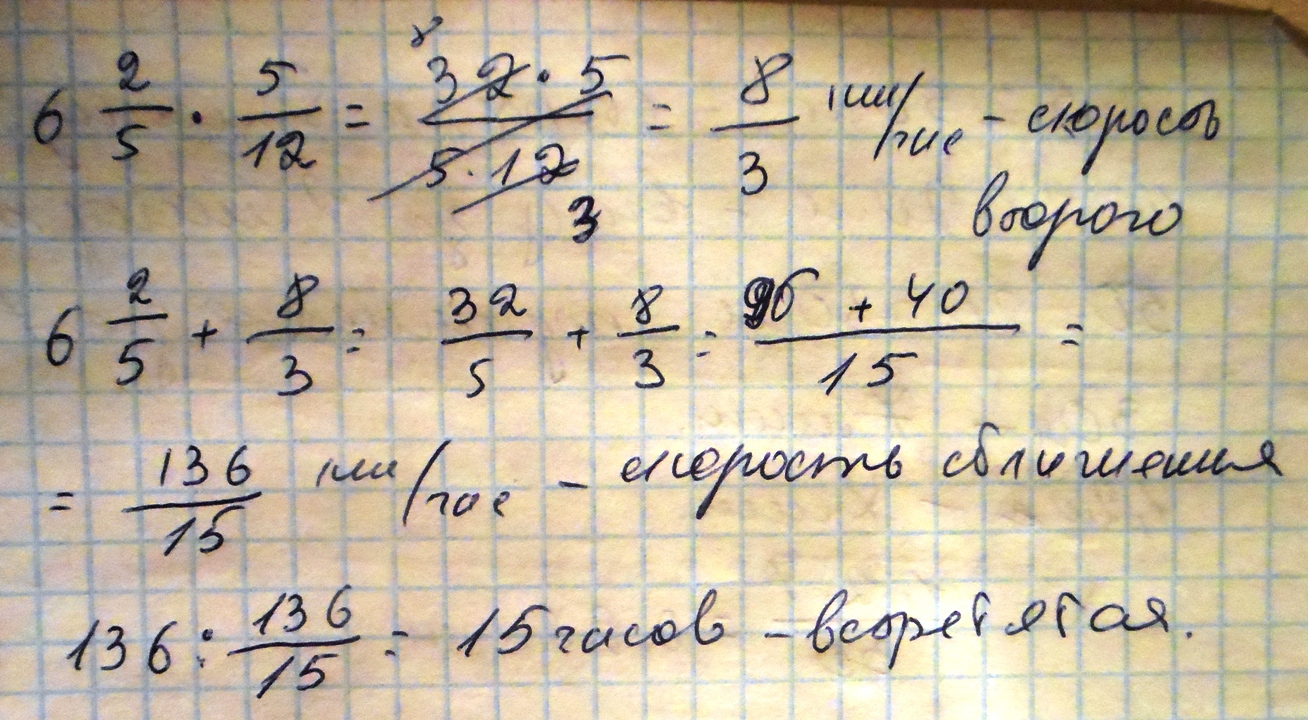 6 2/5 · 5/12 = 32·5/5·12 = 8/3 км/час - скорость
8 3
второго
6 2/5 + 8/3 = 32/5 + 8/3 = 96 + 40/15 =
= 136/15 км/час - скорость сближения
136 : 136/15 = 15 часов - встретятся.